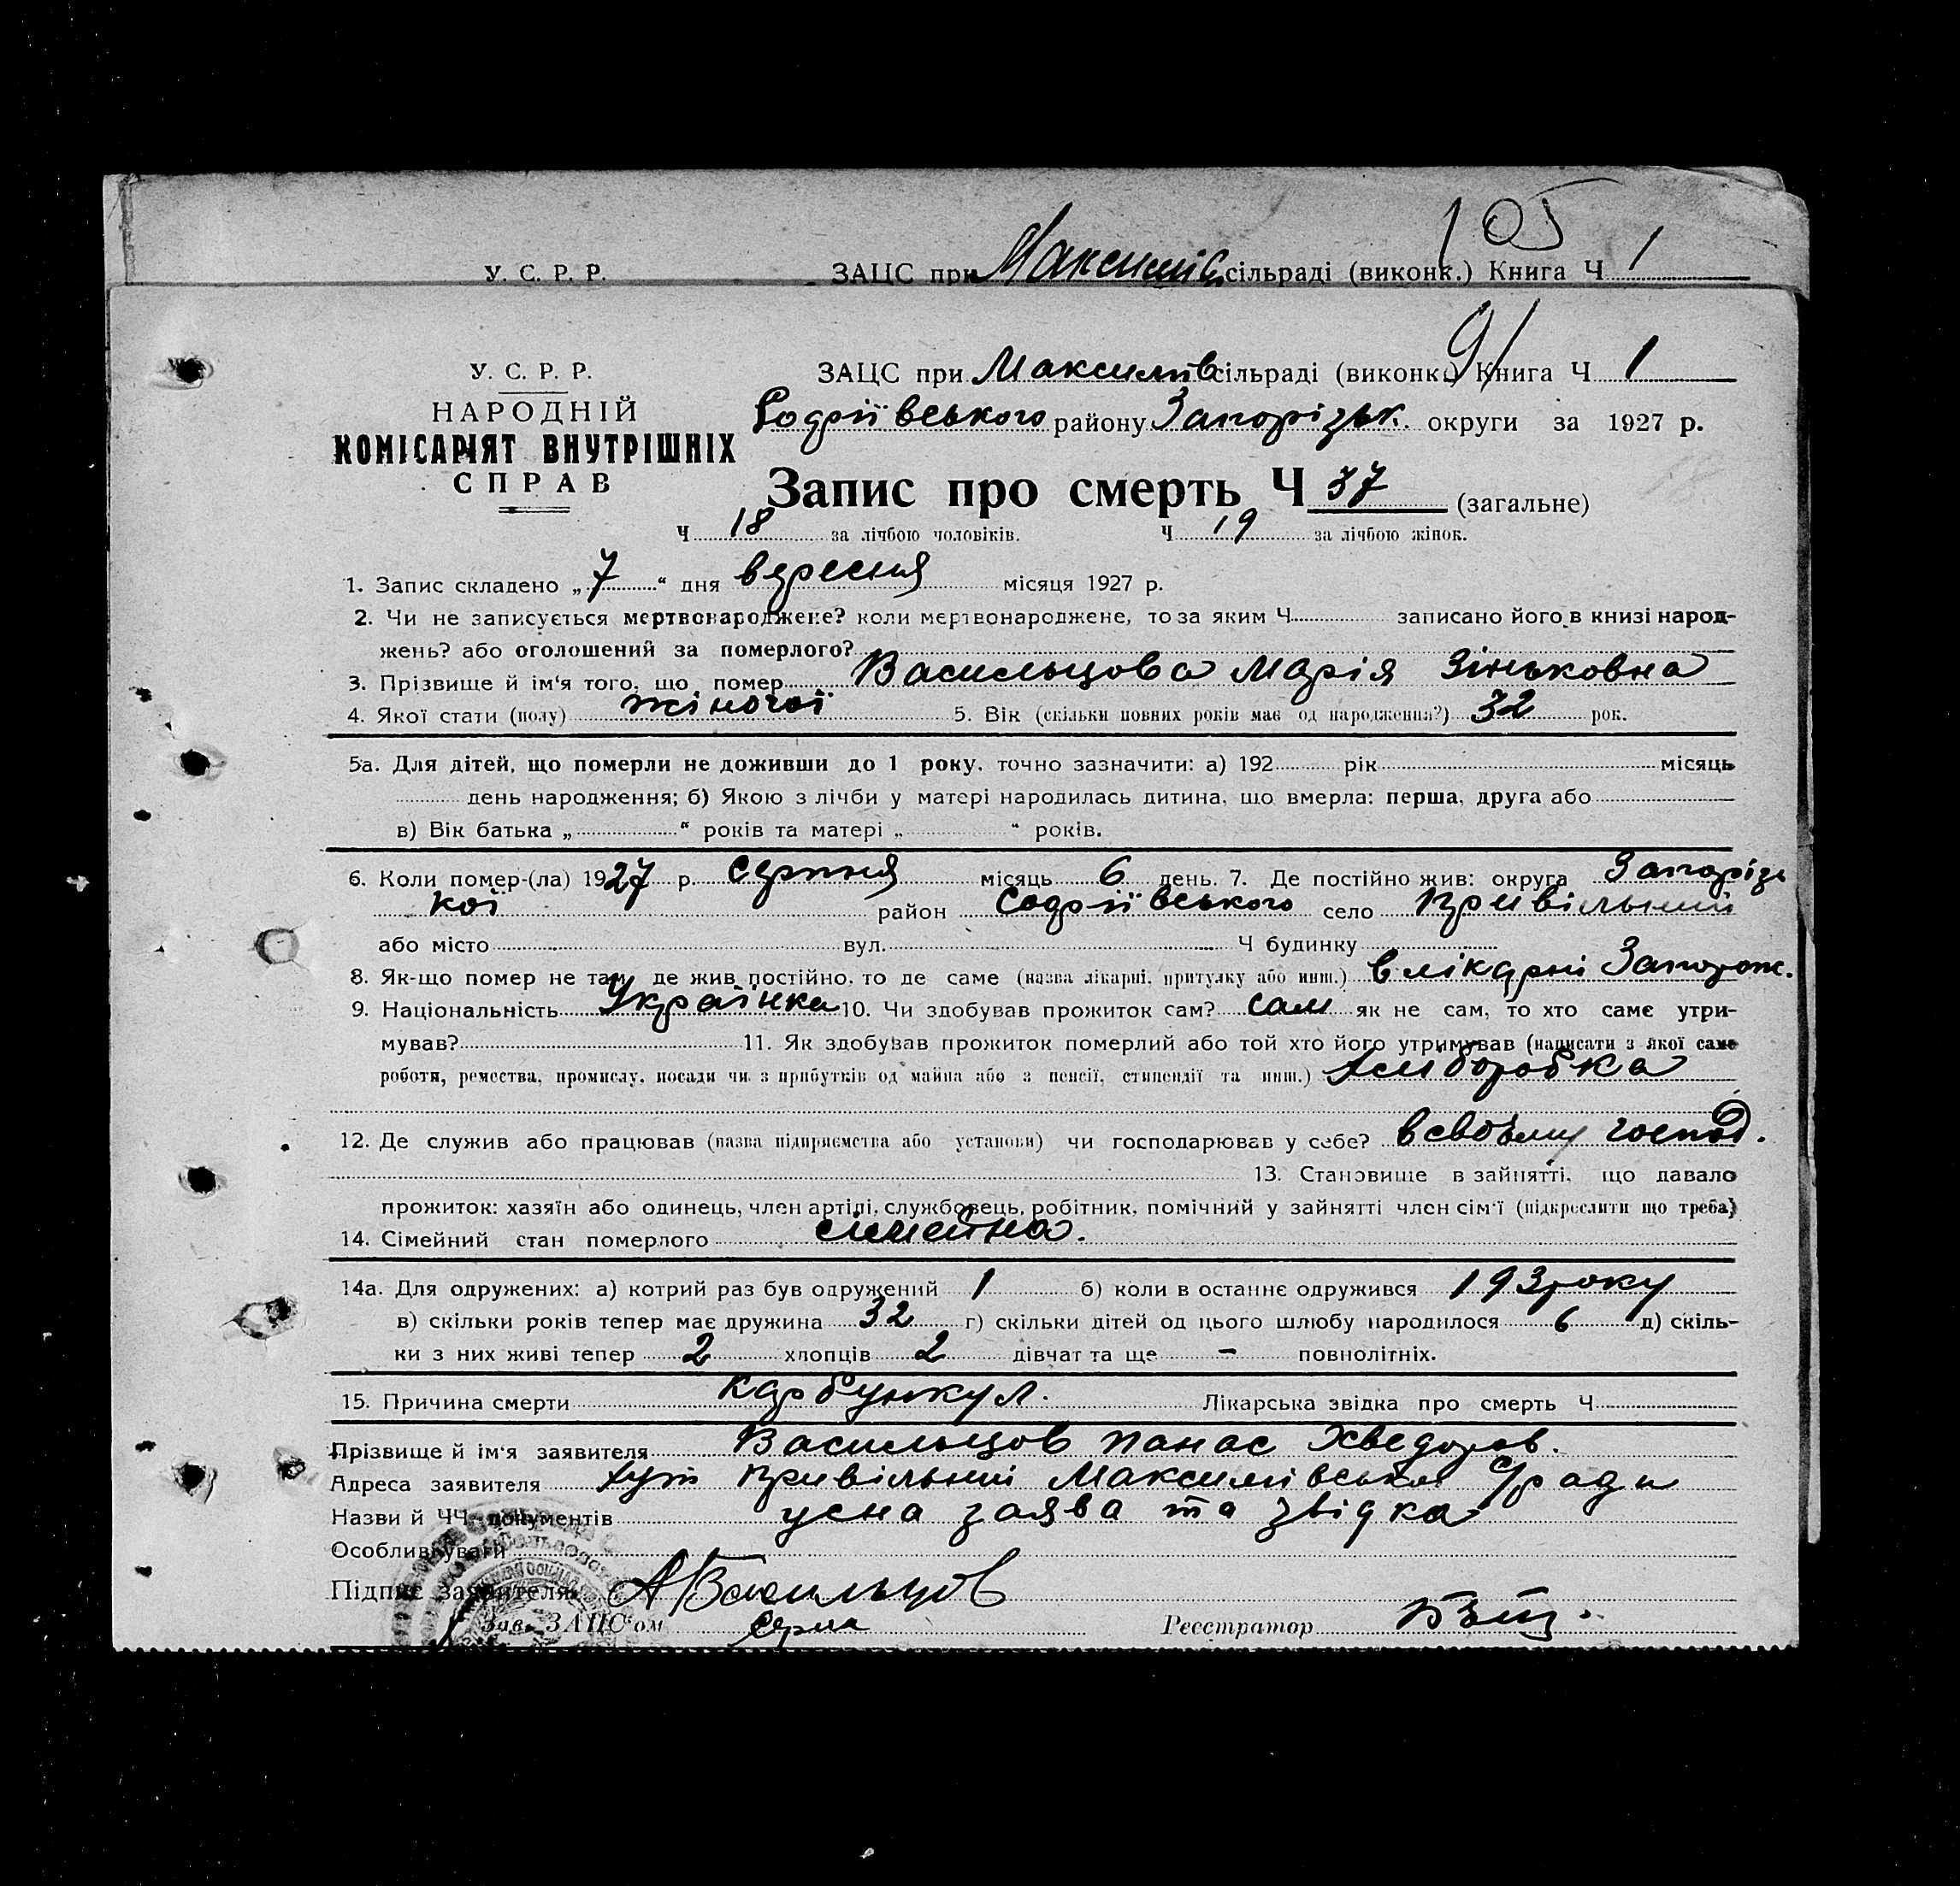 105
У. С. Р. Р. ЗАЦС при Максимів сільраді (виконк.) Книга Ч 1
91
У. С. Р. Р. ЗАЦС при Максимів сільраді (виконк.) Книга Ч 1
НАРОДНІЙ
Софіївського району Запорізьк. округи за 1927 р.
КОМІСАРІЯТ ВНУТРІШНІХ
СПРАВ
Запис про смерть Ч 37 (загальне)
Ч 18 за лічбою чоловіків. Ч 19 за лічбою жінок.
1. Запис складено „ 7 “ дня вересня місяця 1927 р.
2. Чи не записується мертвонароджене? коли мертвонароджене, то за яким Ч записано його в книзі народ-
жень? або оголошений за померлого?
3. Прізвище й ім'я того, що помер Васильцова Марія Зіньковна
4. Якої стати (полу) жіночої 5. Вік (скільки повних років має од народження?) 32 рок.
5а. Для дітей, що померли не доживши до 1 року, точно зазначити: а) 192 рік місяць
день народження; б) Якою з лічби у матері народилась дитина, що вмерла: перша, друга або
в) Вік батька „ “ років та матері „ “ років.
6. Коли помер-(ла) 1927 р. серпня місяць 6 день. 7. Де постійно жив: округа Запорізь
кої район Софіївського село Привільний
або місто вул. Ч будинку
8. Як-що помер не там, де жив постійно, то де саме (назва лікарні, притулку або инш.) в лікарні Запорож.
9. Національність Українка 10. Чи здобував прожиток сам? сам як не сам, то хто саме утри-
мував? 11. Як здобував прожиток померлий або той хто його утримував (написати з якої саме
роботи, ремества, промислу, посади чи з прибутків од майна або з пенсії, стипендії та инш.) хліборобка
12. Де служив або працював (назва підприємства або установи) чи господарював у себе? в своъму господ.
13. Становище в зайнятті, що давало
прожиток: хазяїн або одинець, член артілі, службовець, робітник, помічний у зайнятті член сім'ї (підкреслити що треба)
14. Сімейний стан померлого сімейна.
14а. Для одружених: а) котрий раз був одружений 1 б) коли в останнє одружився 193 року
в) скільки років тепер має дружина 32 г) скільки дітей од цього шлюбу народилося 6 д) скіль-
ки з них живі тепер 2 хлопців 2 дівчат та ще - повнолітніх.
15. Причина смерти карбункул. Лікарська звідка про смерть Ч
Прізвище й ім'я заявителя Васильцов Панас Хведоров.
Адреса заявителя хут Привільний Максимівської С/ради
Назви й ЧЧ документів усна заява та звідка
Особливі уваги
Підпис заявителя АВасильцов
Зав. ЗАЦС'ом Реєстратор